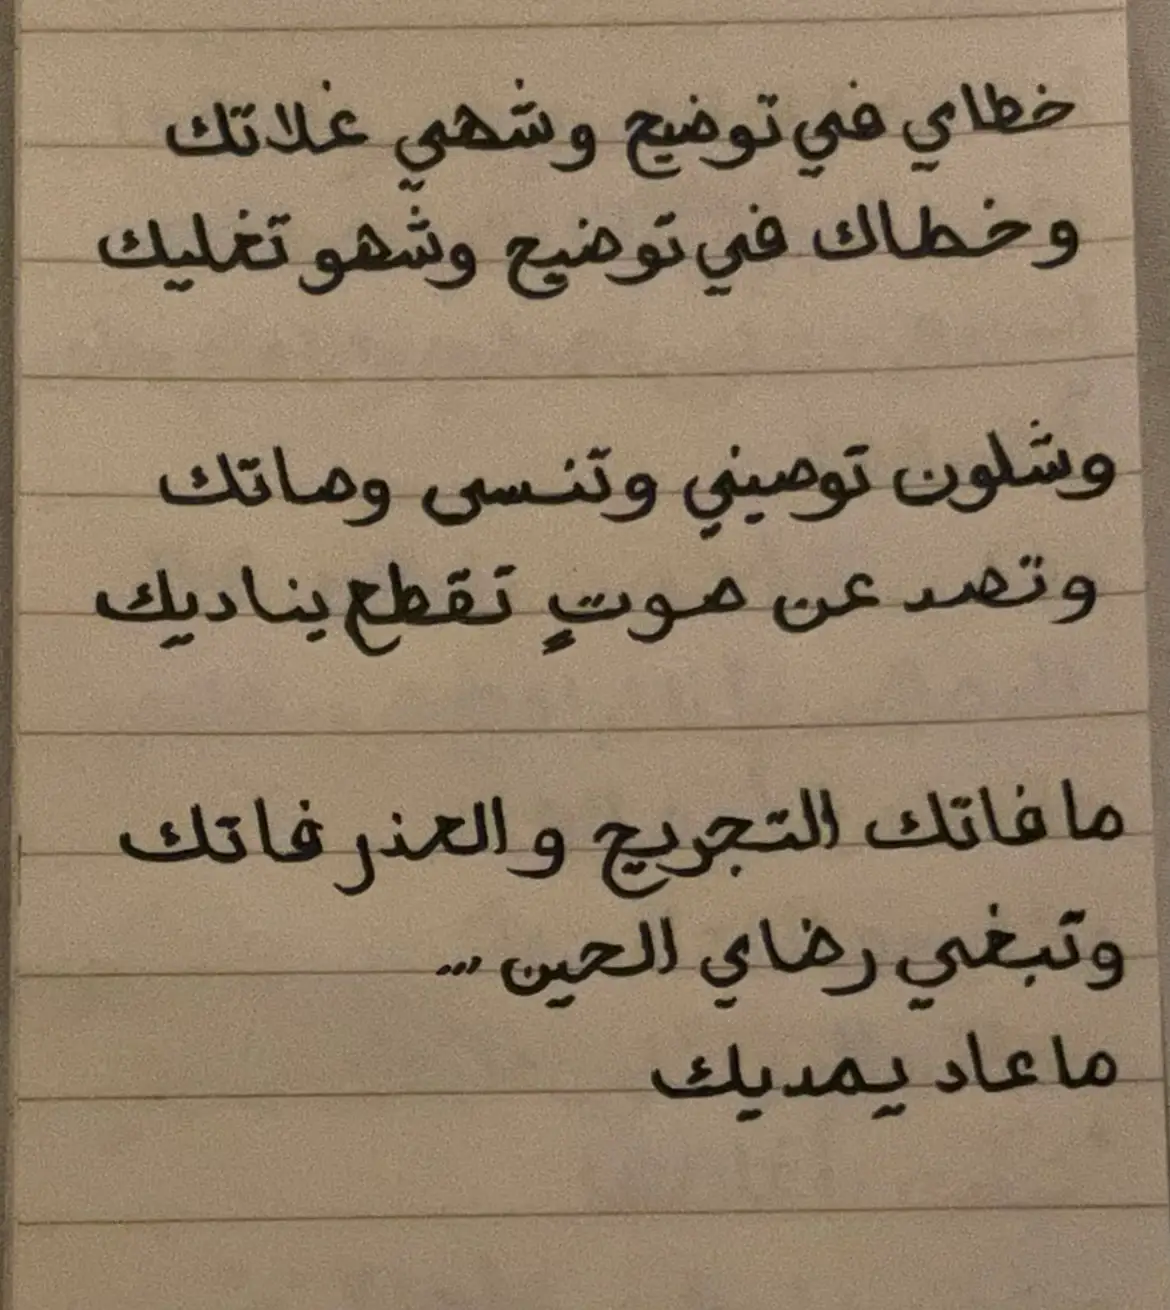 خطاي في توضيح وشهي غلاتك
وخطاك في توضيح وشهو تغليك
وشلون توصيني وتنسى وصاتك
وتصد عن صوتٍ تقطع يناديك
ما فاتك التجريح والعذر فاتك
وتبغي رضاي الحين ...
ما عاد يمديك